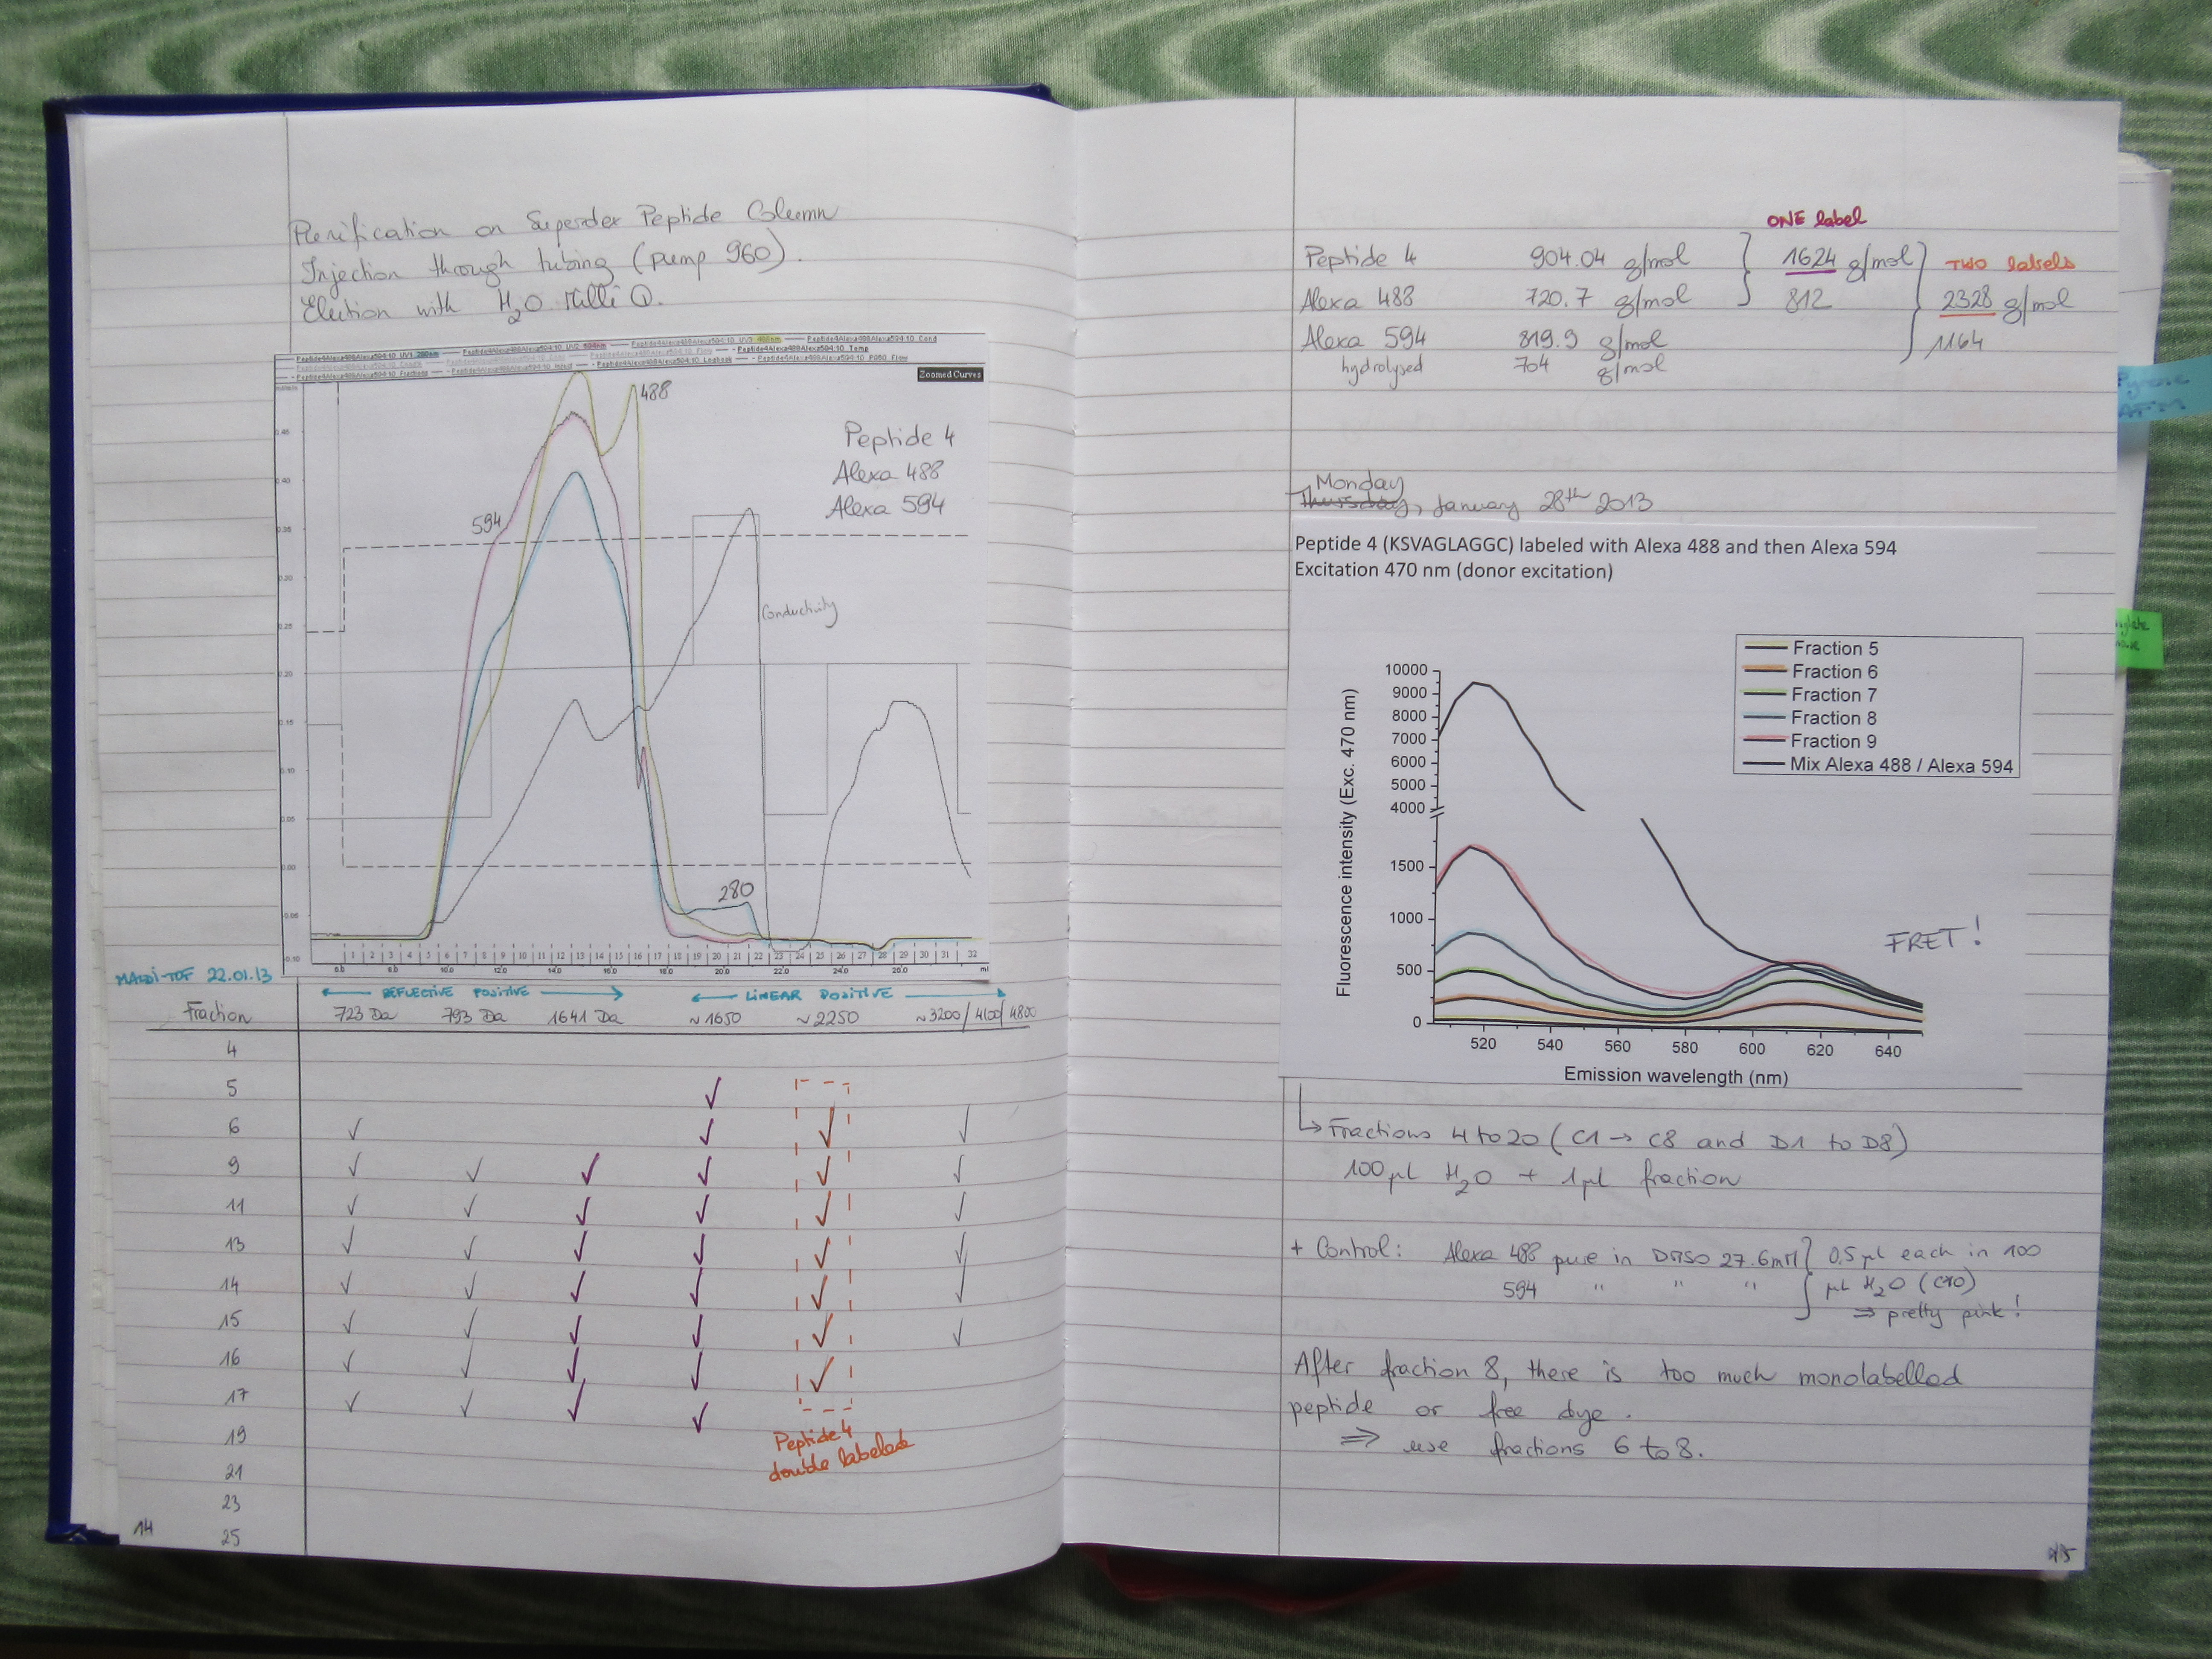 Purification on Superdex Peptide Column
Injection through tubing (pump 960).
Elution with H₂O Milli Q.
Zoomed Curves
488
594
Peptide 4
Alexa 488
Alexa 594
Conductivity
280
0.45
0.40
0.35
0.30
0.25
0.20
0.15
0.10
0.05
0.00
-0.05
-0.10
1 2 3 4 5 6 7 8 9 10 11 12 13 14 15 16 17 18 19 20 21 22 23 24 25 26 27 28 29 30 31 32
ml
MALDI-TOF 22.01.13
REFLECTIVE POSITIVE
LINEAR POSITIVE
Fraction 723 Da 793 Da 1641 Da ~1650 ~2250 ~3200/4100/4800
4
5 ✓
6 ✓ ✓ ✓ ✓
9 ✓ ✓ ✓ ✓ ✓ ✓
11 ✓ ✓ ✓ ✓ ✓ ✓
13 ✓ ✓ ✓ ✓ ✓ ✓
14 ✓ ✓ ✓ ✓ ✓ ✓
15 ✓ ✓ ✓ ✓ ✓ ✓
16 ✓ ✓ ✓ ✓ ✓
17 ✓ ✓ ✓ ✓
19
21
23
25
Peptide 4
double labeled
14
ONE label
Peptide 4 904.04 g/mol 1624 g/mol TWO labels
Alexa 488 720.7 g/mol 812 2328 g/mol
Alexa 594 819.9 g/mol 1164
hydrolysed 704 g/mol
Monday
Thursday, January 28th 2013
Peptide 4 (KSVAGLAGGC) labeled with Alexa 488 and then Alexa 594
Excitation 470 nm (donor excitation)
Fraction 5
Fraction 6
Fraction 7
Fraction 8
Fraction 9
Mix Alexa 488 / Alexa 594
Fluorescence intensity (Exc. 470 nm)
10000
9000
8000
7000
6000
5000
4000
1500
1000
500
0
FRET!
520 540 560 580 600 620 640
Emission wavelength (nm)
↳ Fractions 4 to 20 (C1 → C8 and D1 to D8)
100 µL H₂O + 1 µL fraction
+ Control: Alexa 488 pure in DMSO 27.6mM } 0.5 µL each in 100
594 " " " µL H₂O
⇒ pretty pink!
After fraction 8, there is too much monolabelled
peptide or free dye.
⇒ use fractions 6 to 8.